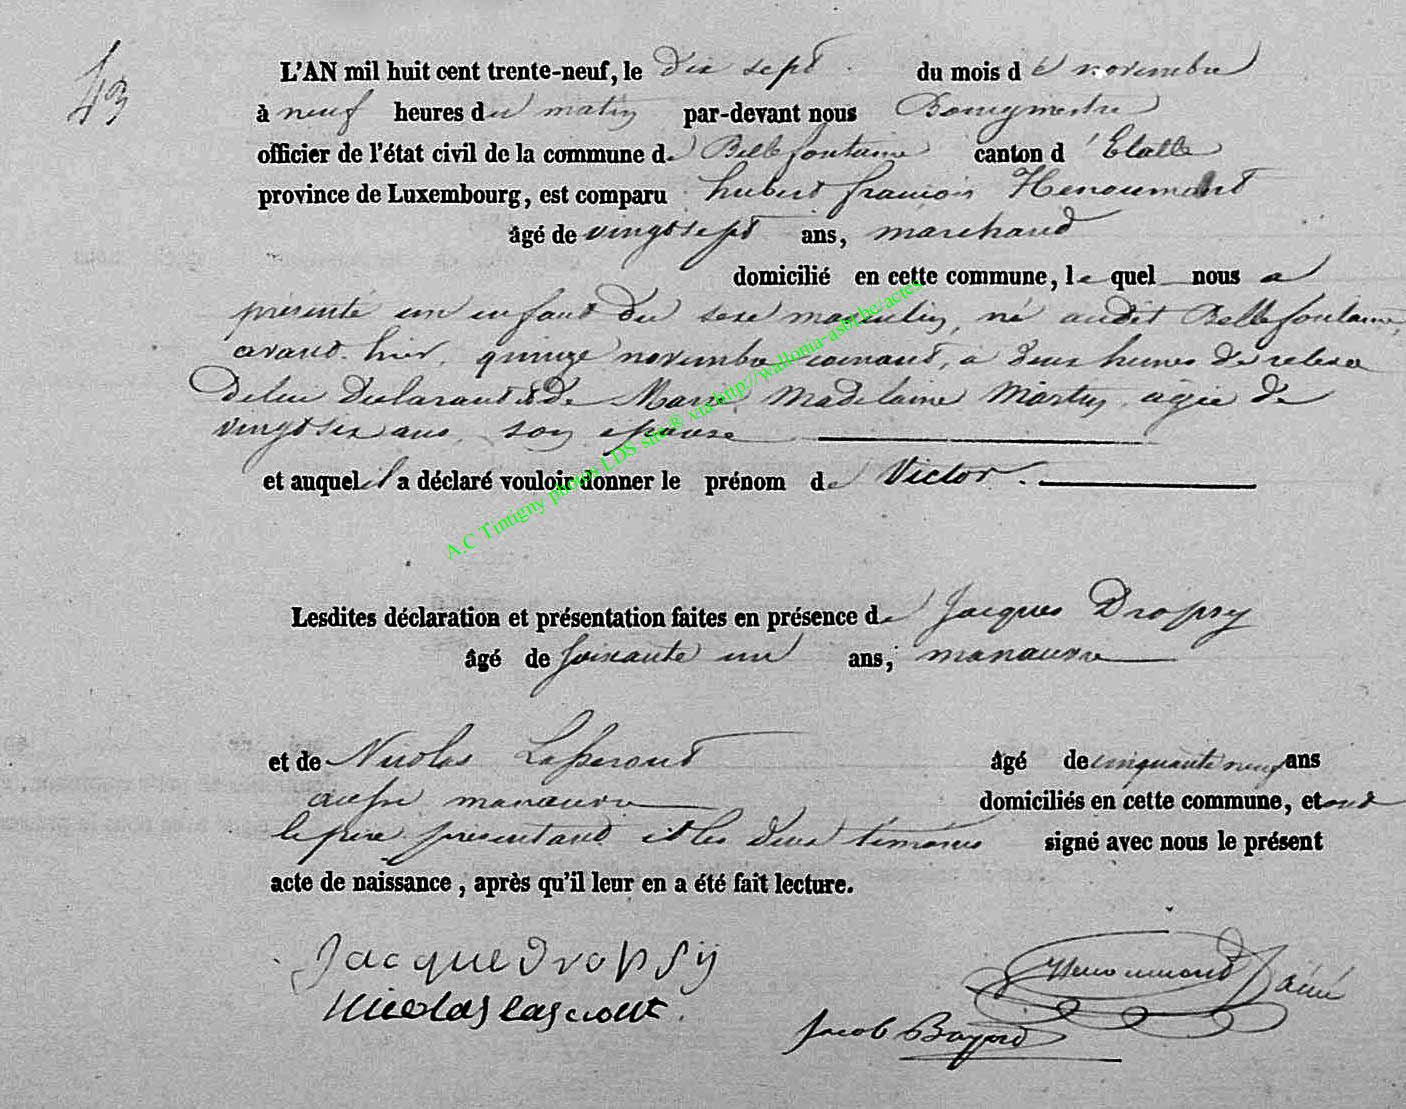 43
L'AN mil huit cent trente-neuf, le dix sept du mois de novembre
à neuf heures du matin par-devant nous Bourgmestre
officier de l'état civil de la commune de Bellefontaine canton d'Etalle
province de Luxembourg, est comparu hubert françois Henoumont
âgé de vingt sept ans, marchand
domicilié en cette commune, lequel nous a
présenté un enfant du sexe masculin, né audit Bellefontaine,
avant hier, quinze novembre courant, à deux heures de relevée
de lui déclarant & de Marie Madelaine Martin agée de
vingt six ans, son épouse
et auquel il a déclaré vouloir donner le prénom de Victor.
A.C Tintigny photos LDS site ® via http://wallonia-asbl.be/actes
Lesdites déclaration et présentation faites en présence de Jacques Dropsy
âgé de soixante un ans, manœuvre
et de Nicolas Lasseront âgé de cinquante neuf ans
aussi manœuvre domiciliés en cette commune, et ont
le père présentant et les deux témoins signé avec nous le présent
acte de naissance, après qu'il leur en a été fait lecture.
Jacque Dropsÿ Henoumont
Nicolas
Jacob Bayard